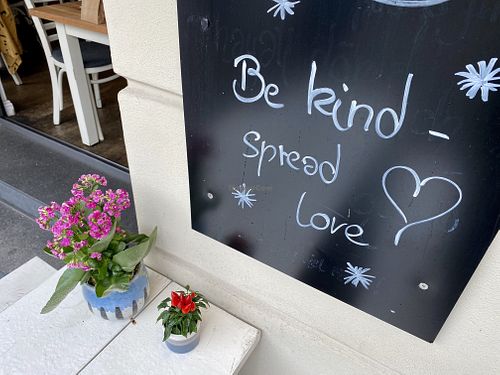 Be kind -
spread
love